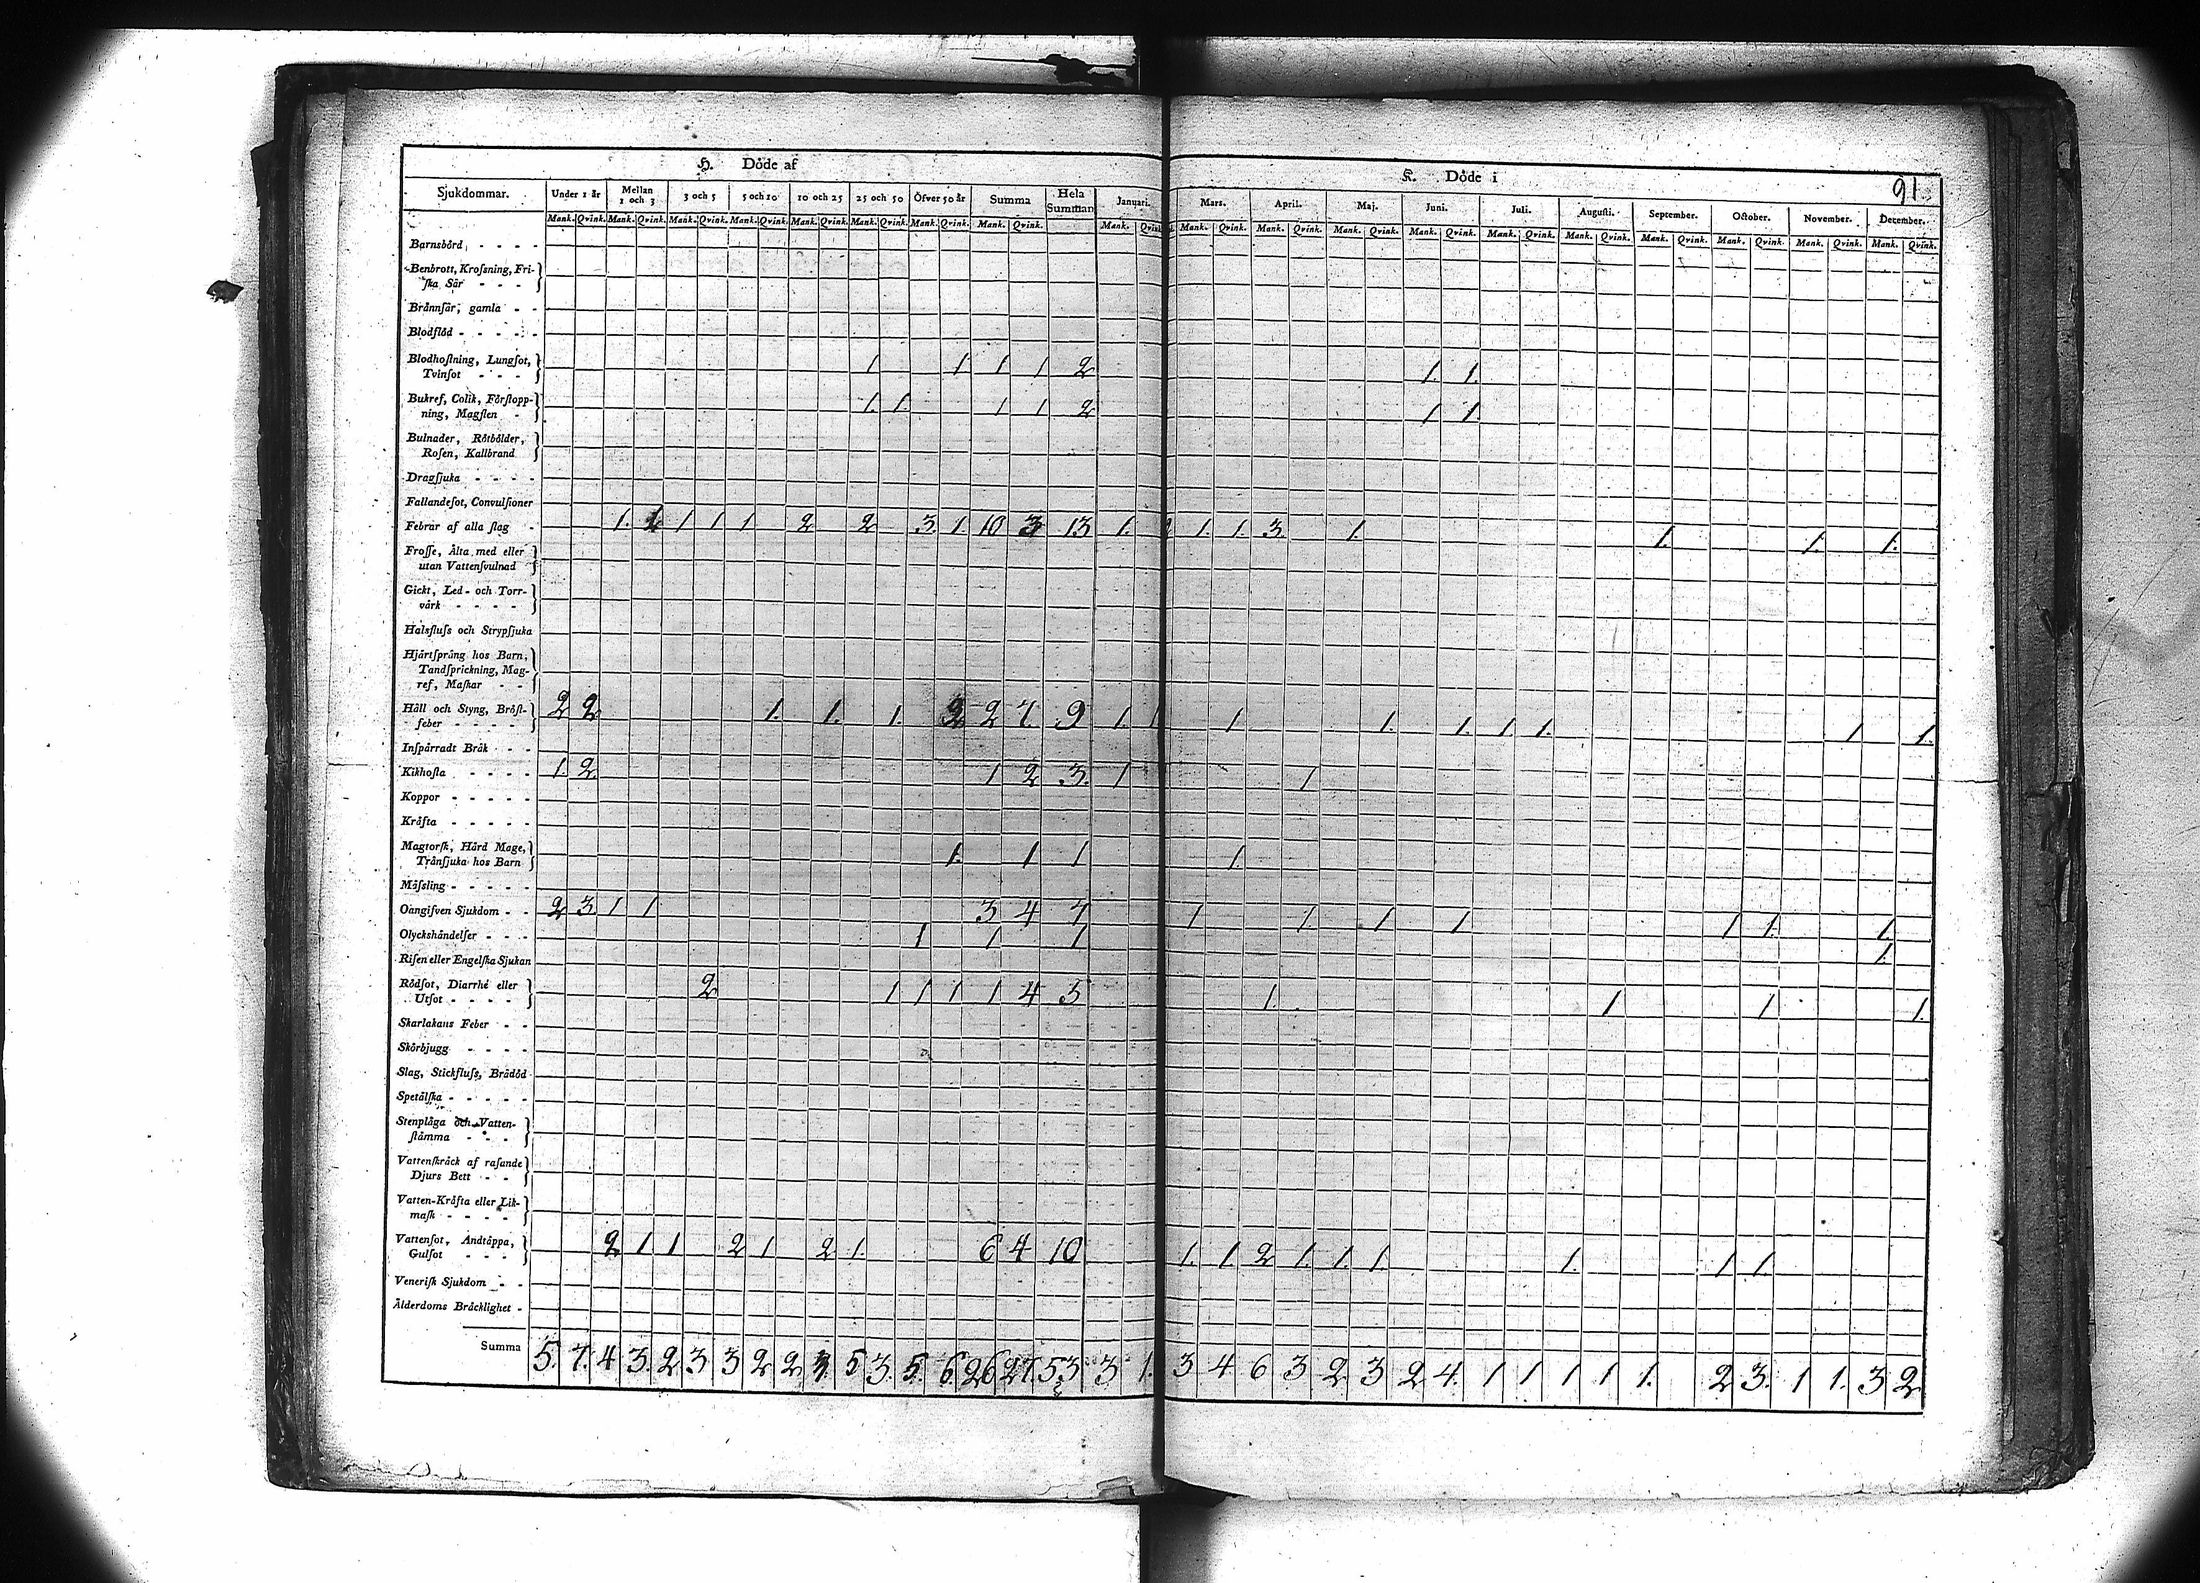 91.
H. Döde af
K. Döde i
Sjukdommar. Under 1 år Mellan 1 och 3 3 och 5 5 och 10 10 och 25 25 och 50 Öfver 50 år Summa Hela Summan Januari. Mars. April. Maj. Juni. Juli. Augusti. September. October. November. December.
Mank. Qvink. Mank. Qvink. Mank. Qvink. Mank. Qvink. Mank. Qvink. Mank. Qvink. Mank. Qvink. Mank. Qvink. Mank. Mank. Qvink. Mank. Qvink. Mank. Qvink. Mank. Qvink. Mank. Qvink. Mank. Qvink. Mank. Qvink. Mank. Qvink. Mank. Qvink. Mank. Qvink.
Barnsbörd, - - - -
Benbrott, Krossning, Fri-
ska Sår - - -
Brännsår, gamla - -
Blodflöd - - - - -
Blodhostning, Lungsot,
Tvinsot - - - 1. 1 1 1 2 1. 1.
Bukref, Colik, Förstopp-
ning, Magsten - 1. 1. 1 1 2 1 1.
Bulnader, Rötbölder,
Rosen, Kallbrand
Dragsjuka - - - -
Fallandesot, Convulsioner
Febrar af alla slag - 1. 1 1 1 2 2 3. 1. 10 3 13 1. 1. 1. 3. 1. 1. 1. 1.
Frosse, Älta med eller
utan Vattensvulnad
Gickt, Led- och Torr-
värk - - - -
Halsfluss och Strypsjuka
Hjärtsprång hos Barn,
Tandsprickning, Mag-
ref, Maskar - -
Håll och Styng, Bröst-
feber - - - - 2 2 1. 1. 1. 2 2 7. 9 1. 1 1 1. 1. 1 1. 1 1.
Inspärradt Bråk - - -
Kikhosta - - - - 1. 2 1 2 3. 1 1
Koppor - - - - -
Kräfta - - - - -
Magtorsk, Hård Mage,
Tränsjuka hos Barn 1. 1 1 1.
Mässling - - - - -
Oangifven Sjukdom - - 2 3 1 1 3 4 7 1 1 1 1 1 1. 1.
Olyckshändelser - - - 1 1 1 1.
Risen eller Engelska Sjukan
Rödsot, Diarrhé eller
Utsot - - - - 2 1 1 1 1 4 5 1. 1 1 1.
Skarlakans Feber - -
Skörbjugg - - - -
Slag, Stickfluss, Brådöd
Spetälska - - - - -
Stenplåga och Vatten-
stämma - - -
Vattenskräck af rasande
Djurs Bett - -
Vatten-Kräfta eller Lik-
mask - - - -
Vattensot, Andtäppa,
Gulsot - - - 2 1 1 2 1 2 1. 6 4 10 1. 1 2 1. 1. 1. 1. 1 1.
Venerisk Sjukdom - -
Ålderdoms Bräcklighet -
Summa 5. 7. 4 3. 2 3 3 2 2 3. 5 3. 5. 6. 26 27. 53 3 1. 3 4 6 3 2 3 2 4. 1 1 1 1 1. 2 3. 1 1. 3 2